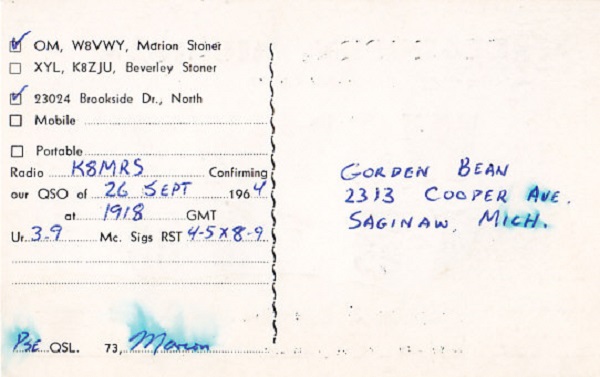 OM, W8VWY, Marion Stoner
XYL, K8ZJU, Beverley Stoner
23024 Brookside Dr., North
Mobile
Portable
Radio K8MRS Confirming
our QSO of 26 SEPT 1964
at 1918 GMT
Ur. 3-9 Mc. Sigs RST 4-5X8-9
PSE QSL. 73, Marion
GORDEN BEAN
2313 COOPER AVE.
SAGINAW, MICH.